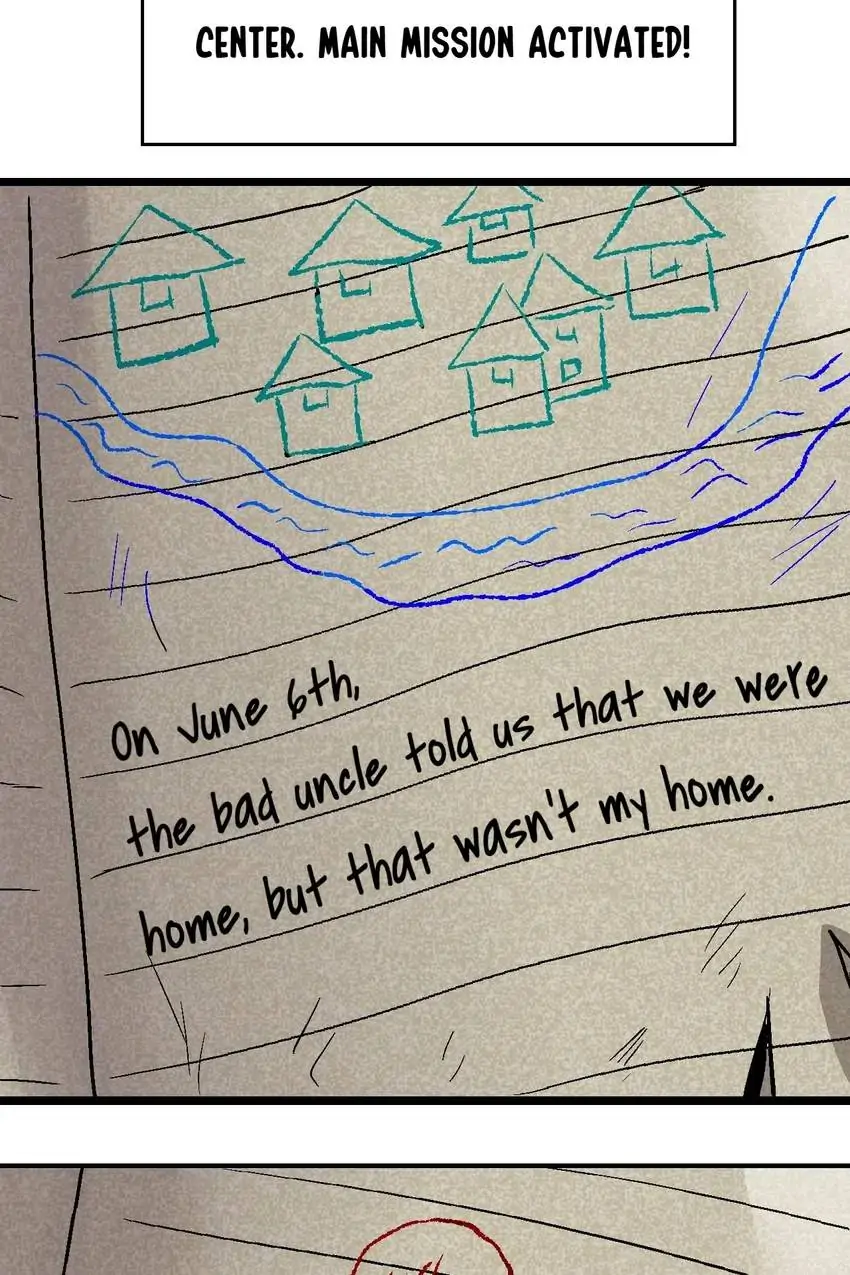 CENTER. MAIN MISSION ACTIVATED!
On June 6th,
the bad uncle told us that we were
home, but that wasn't my home.